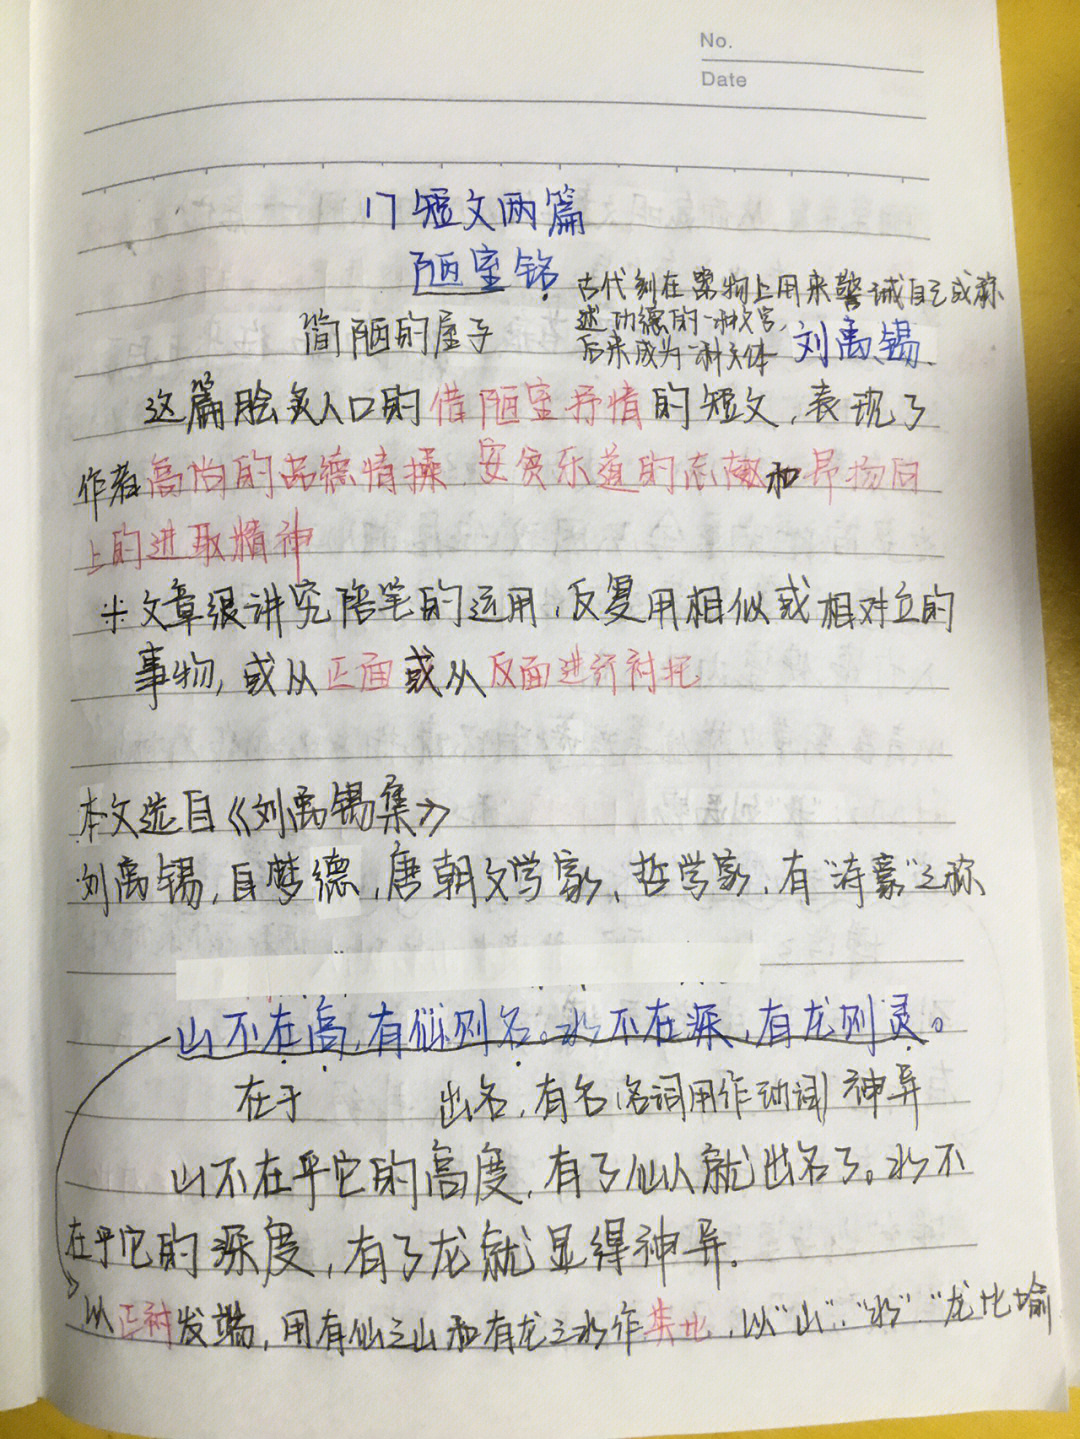 No.
Date
17 短文两篇
陋室铭
古代刻在器物上用来警诫自己或称
述功德的一种文字,
后来成为一种文体
简陋的屋子
刘禹锡
这篇脍炙人口的借陋室抒情的短文,表现了
作者高尚的品德情操,安贫乐道的志趣和昂扬向
上的进取精神
※文章很讲究陪笔的运用,反复用相似或相对立的
事物,或从正面或从反面进行衬托
本文选自《刘禹锡集》
刘禹锡,自梦德,唐朝文学家、哲学家,有"诗豪"之称
山不在高,有仙则名。水不在深,有龙则灵。
在于 出名,有名(名词用作动词) 神异
山不在乎它的高度,有了仙人就出名了。水不
在乎它的深度,有了龙就显得神异.
以正衬发端,用有仙之山和有龙之水作类比,以"山"、"水"、"龙比喻